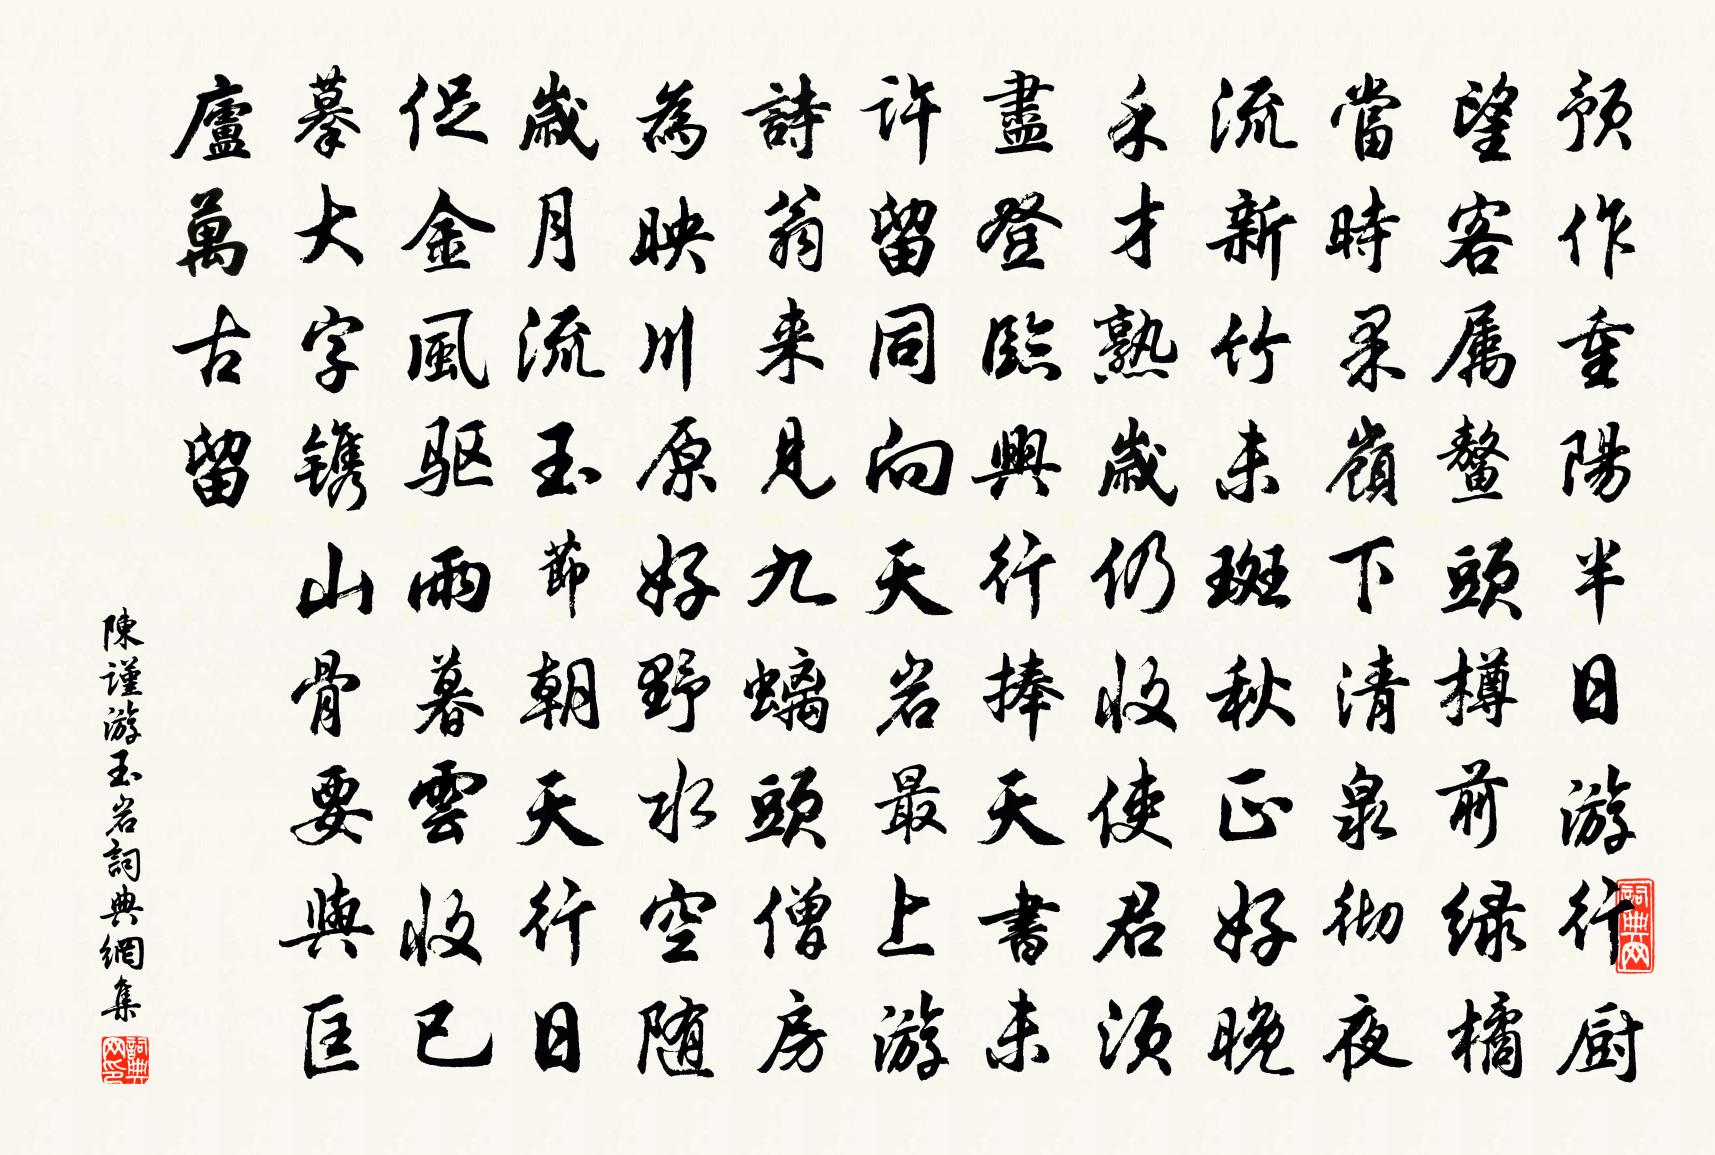 預作重陽半日游行厨
望客属鰲頭樽前緑橘
當時采嶺下清泉彻夜
流新竹未斑秋正好晚
禾才熟歲仍收使君須
盡登臨興行捧天書未
許留同向天岩最上游
詩翁来見九螭頭僧房
為映川原好野水空随
歲月流玉節朝天行日
促金風驱雨暮雲收已
摹大字镌山骨要與匡
廬萬古留
陳谨游玉岩詞典網集
詞典网
詞典网印